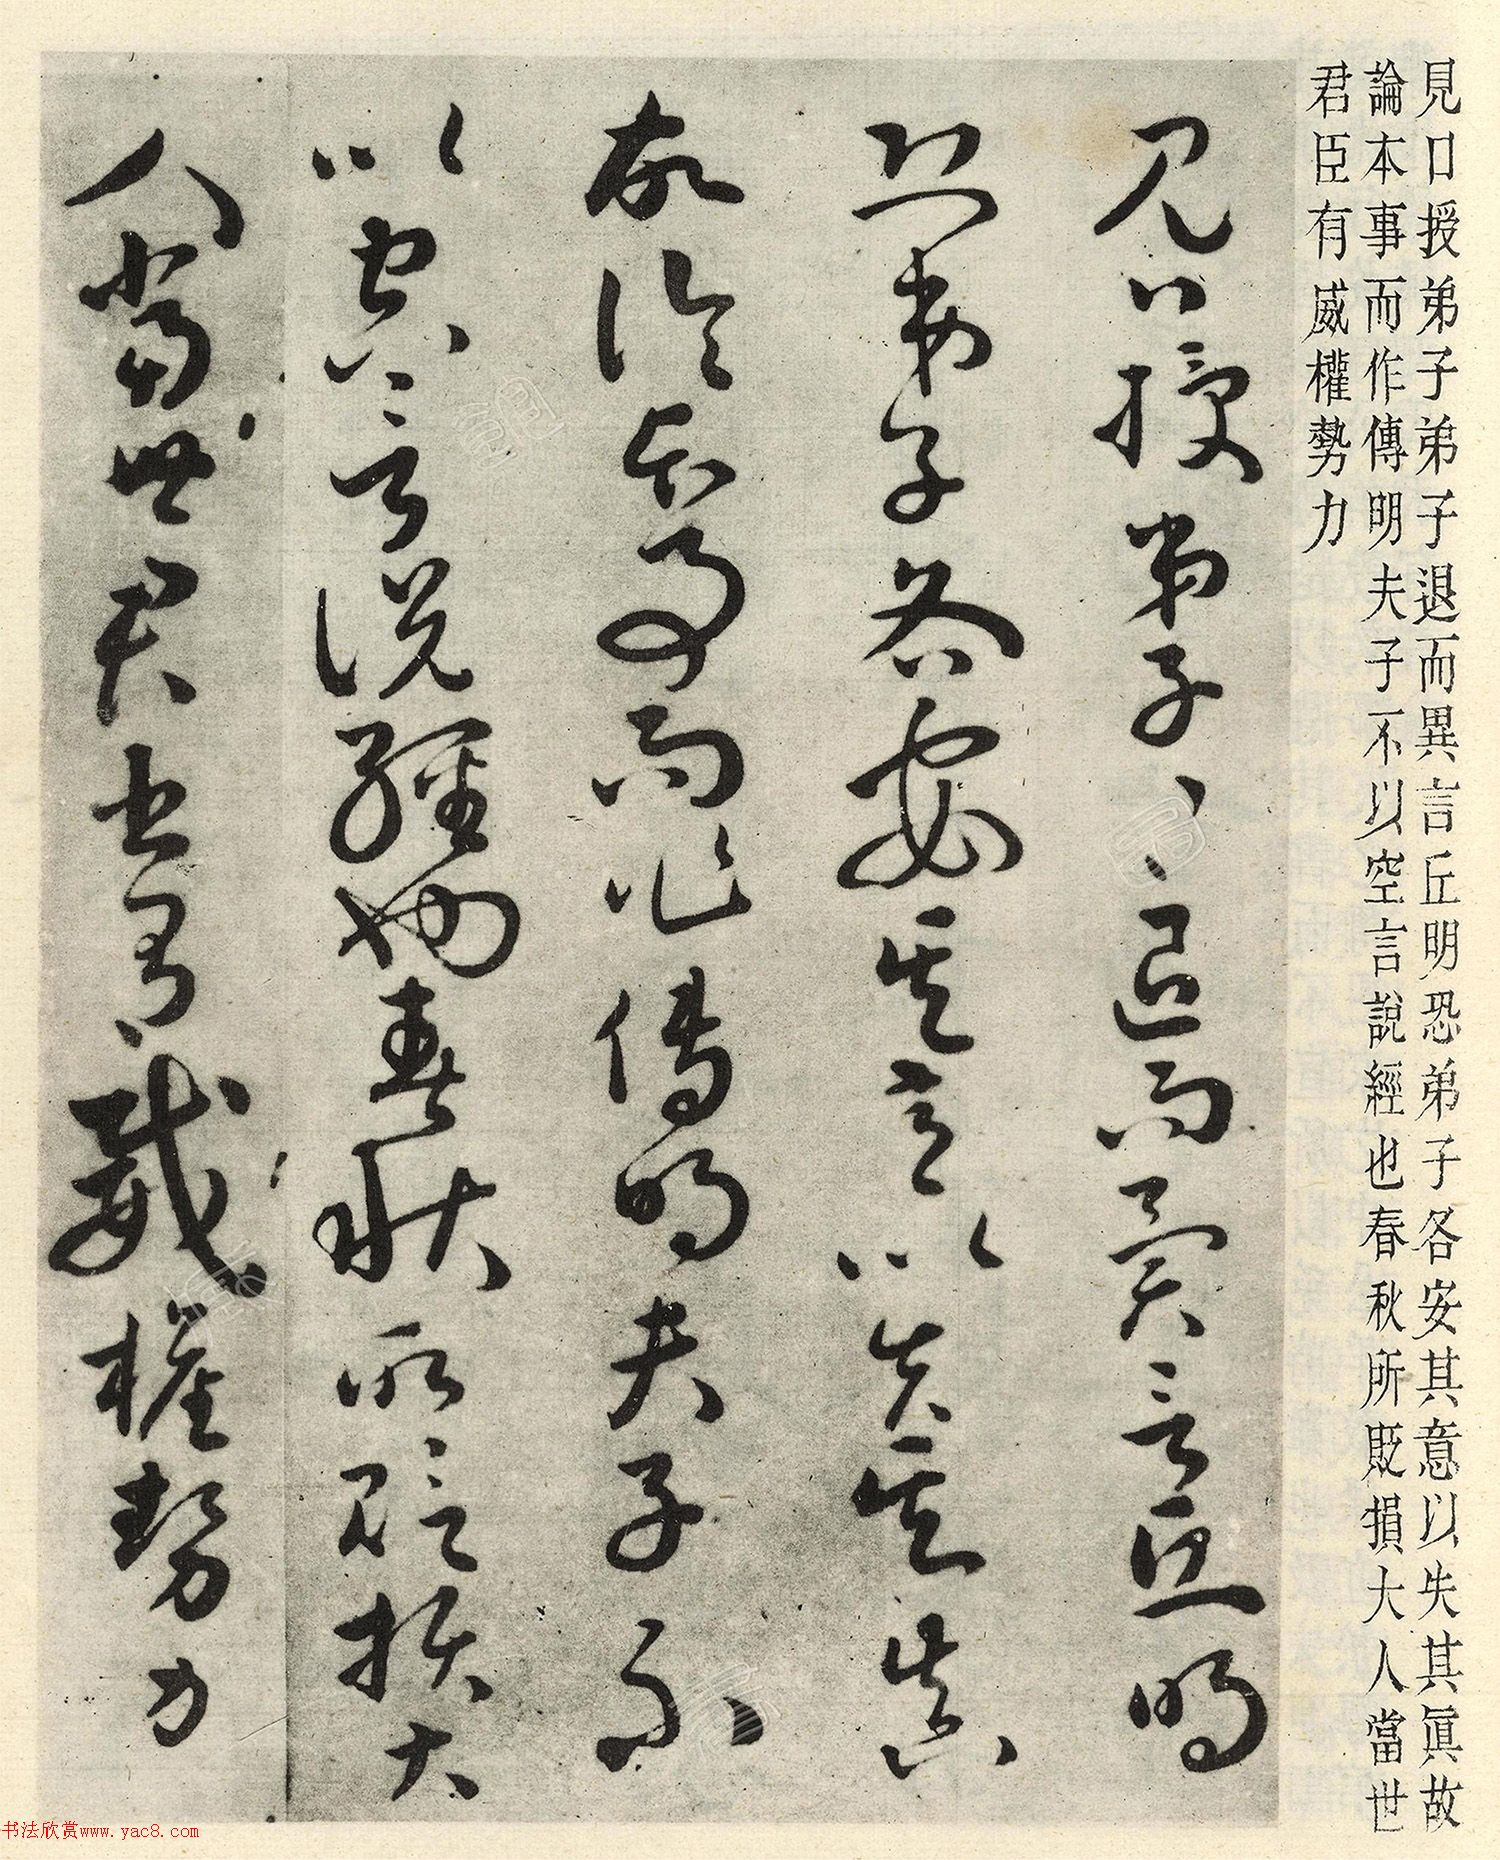 見口授弟子弟子退而異言丘明恐弟子各安其意以失其眞故
論本事而作傳明夫子不以空言說經也春秋所貶損大人當世
君臣有威權勢力
見口授弟子〻退而異言丘明
恐弟子各安其意以失其真
故論本事而作傳明夫子不
以空言說經也春秋所貶損大
人當世君臣有威權勢力
书法欣赏www.yac8.com